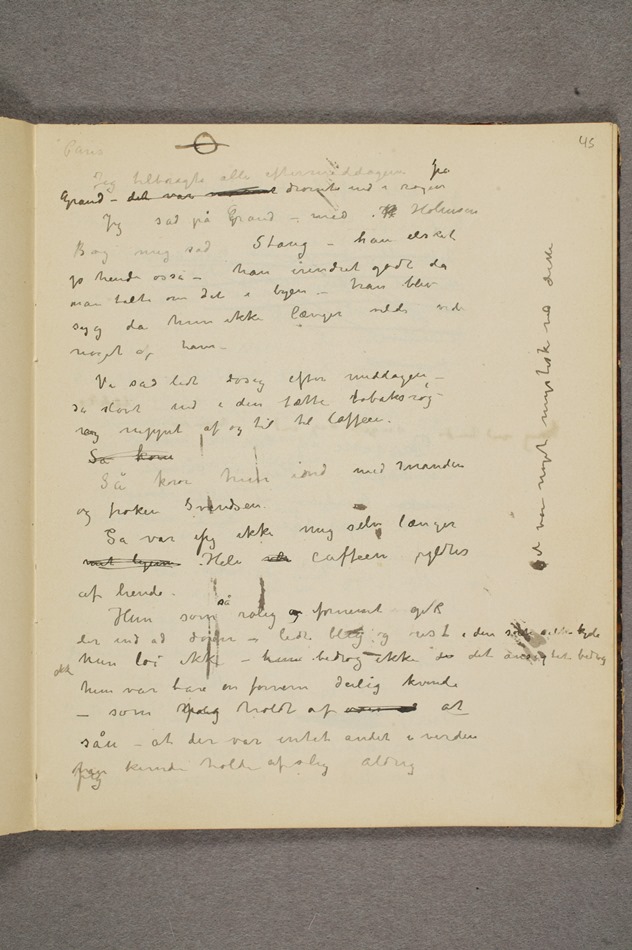 Paris
45
Jeg tilbragte alle eftermiddagen på
Grand – det var drømte ind i røgen
Jeg sad på Grand – med Holmsen
Bag mig sad Stang – han elsket
jo hende også – han ændret godt da
man talte om det i byen – han blev
syg da hun ikke længer vilde vide
noget af ham –
Vi sad lidt døsig efter middagen –
så stort ind i den tætte tobaksrøg –
røg nippet af og til til Caffeen.
Så kom
Så kom hun ind med manden
og frøken Svendsen.
Så var jeg ikke mig selv længer
Hele Caffeen fyldtes
af hende.
Hun som så rolig og fornemt gik
der ind ad døren – lidt bleg og rest i den
hun løi ikke – hun bedrog ikke det
hun var bare en fornem deilig kvinde
– som holdt af at
såu – at der var intet andet i verden
jeg kunde holde af slig aldrig
Det var noget mystisk ved dette